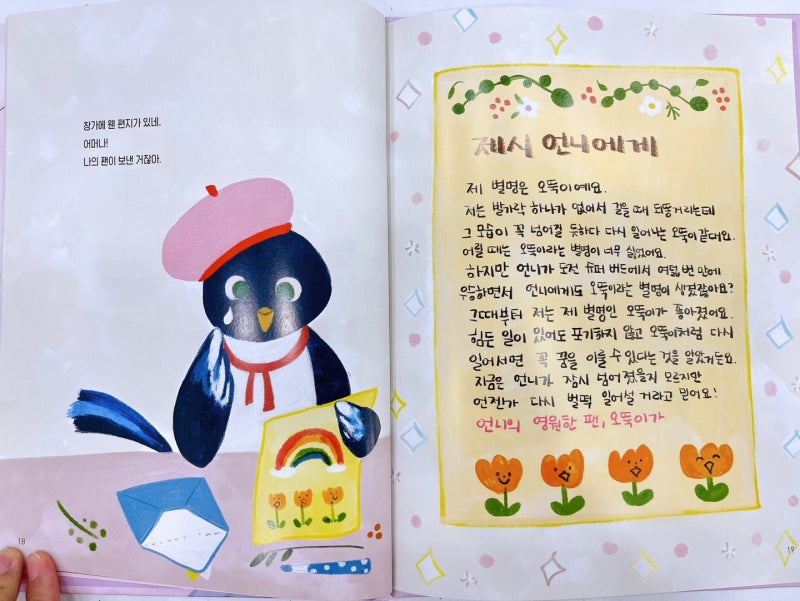 창가에 웬 편지가 있네.
어머나!
나의 팬이 보낸 거잖아.
18
제시 언니에게
제 별명은 오뚝이예요.
저는 발가락 하나가 없어서 걸을 때 뒤뚱거리는데
그 모습이 꼭 넘어질 듯하다 다시 일어나는 오뚝이 같대요.
어릴 때는 오뚝이라는 별명이 너무 싫었어요.
하지만 언니가 도전 슈퍼 버드에서 여덟 번 만에
우승하면서 언니에게도 오뚝이라는 별명이 생겼잖아요?
그때부터 저는 제 별명인 오뚝이가 좋아졌어요.
힘든 일이 있어도 포기하지 않고 오뚝이처럼 다시
일어서면 꼭 꿈을 이룰 수 있다는 것을 알았거든요.
지금은 언니가 잠시 넘어졌을지 모르지만
언젠가 다시 벌떡 일어설 거라고 믿어요!
언니의 영원한 팬, 오뚝이가
19